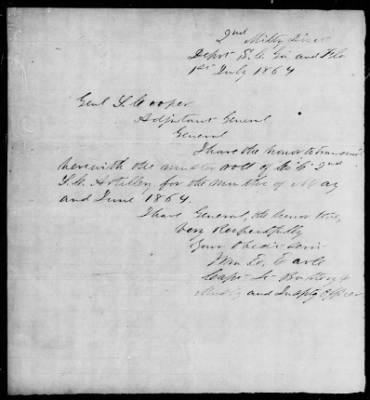 2nd Milty Dist
Depot S. C. Ga and Fla
1st July 1864
Genl S. Cooper
Adjutant General
General
I have the honor to transmit
herewith the muster roll of Co 2nd
S. C. Artillery for the months of May
and June 1864.
I have General, the honor to be,
Very Respectfully
Your Obedt Servt
Wm E. Earle
Capt Lt Battery &
and Insptg Officer